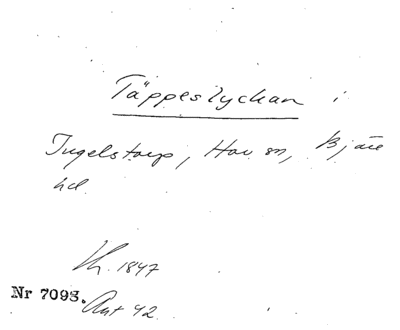 Täppeslyckan i
Ingelstorp, Hov sn, Bjäre
hd.
Lh. 1847
Nr 7093.
Ant 42.